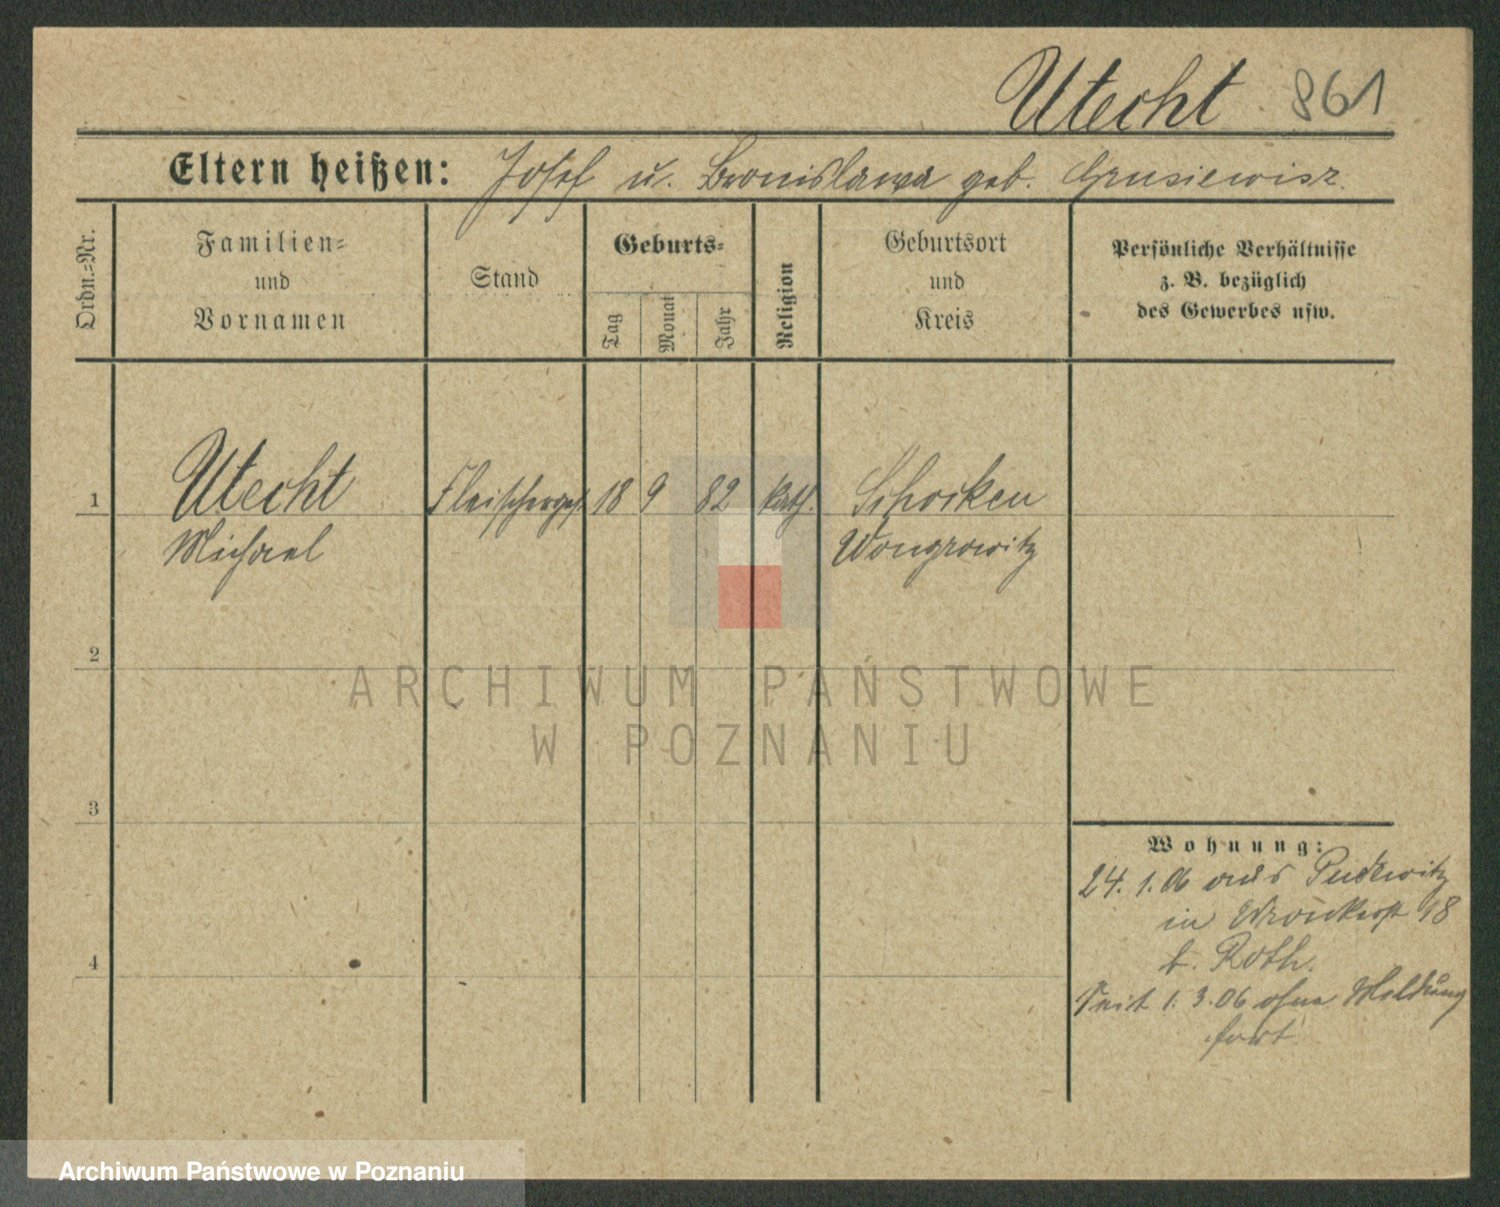 Utecht 861
Eltern heißen: Josef u. Bronislawa geb. Grusiewisz.
Ordn.=Nr.
Familien=
und
Vornamen
Stand
Geburts=
Tag
Monat
Jahr
Religion
Geburtsort
und
Kreis
Persönliche Verhältnisse
z. B. bezüglich
des Gewerbes usw.
1 Utecht Fleischerges. 18 9 82 kath. Schocken
Michael Wongrowitz
2
ARCHIWUM PAŃSTWOWE
W POZNANIU
3
Wohnung:
24. 1. 06 aus Pudewitz
in 18
4
b. Roth.
Seit 1. 3. 06 ohne Meldung
fort
Archiwum Państwowe w Poznaniu